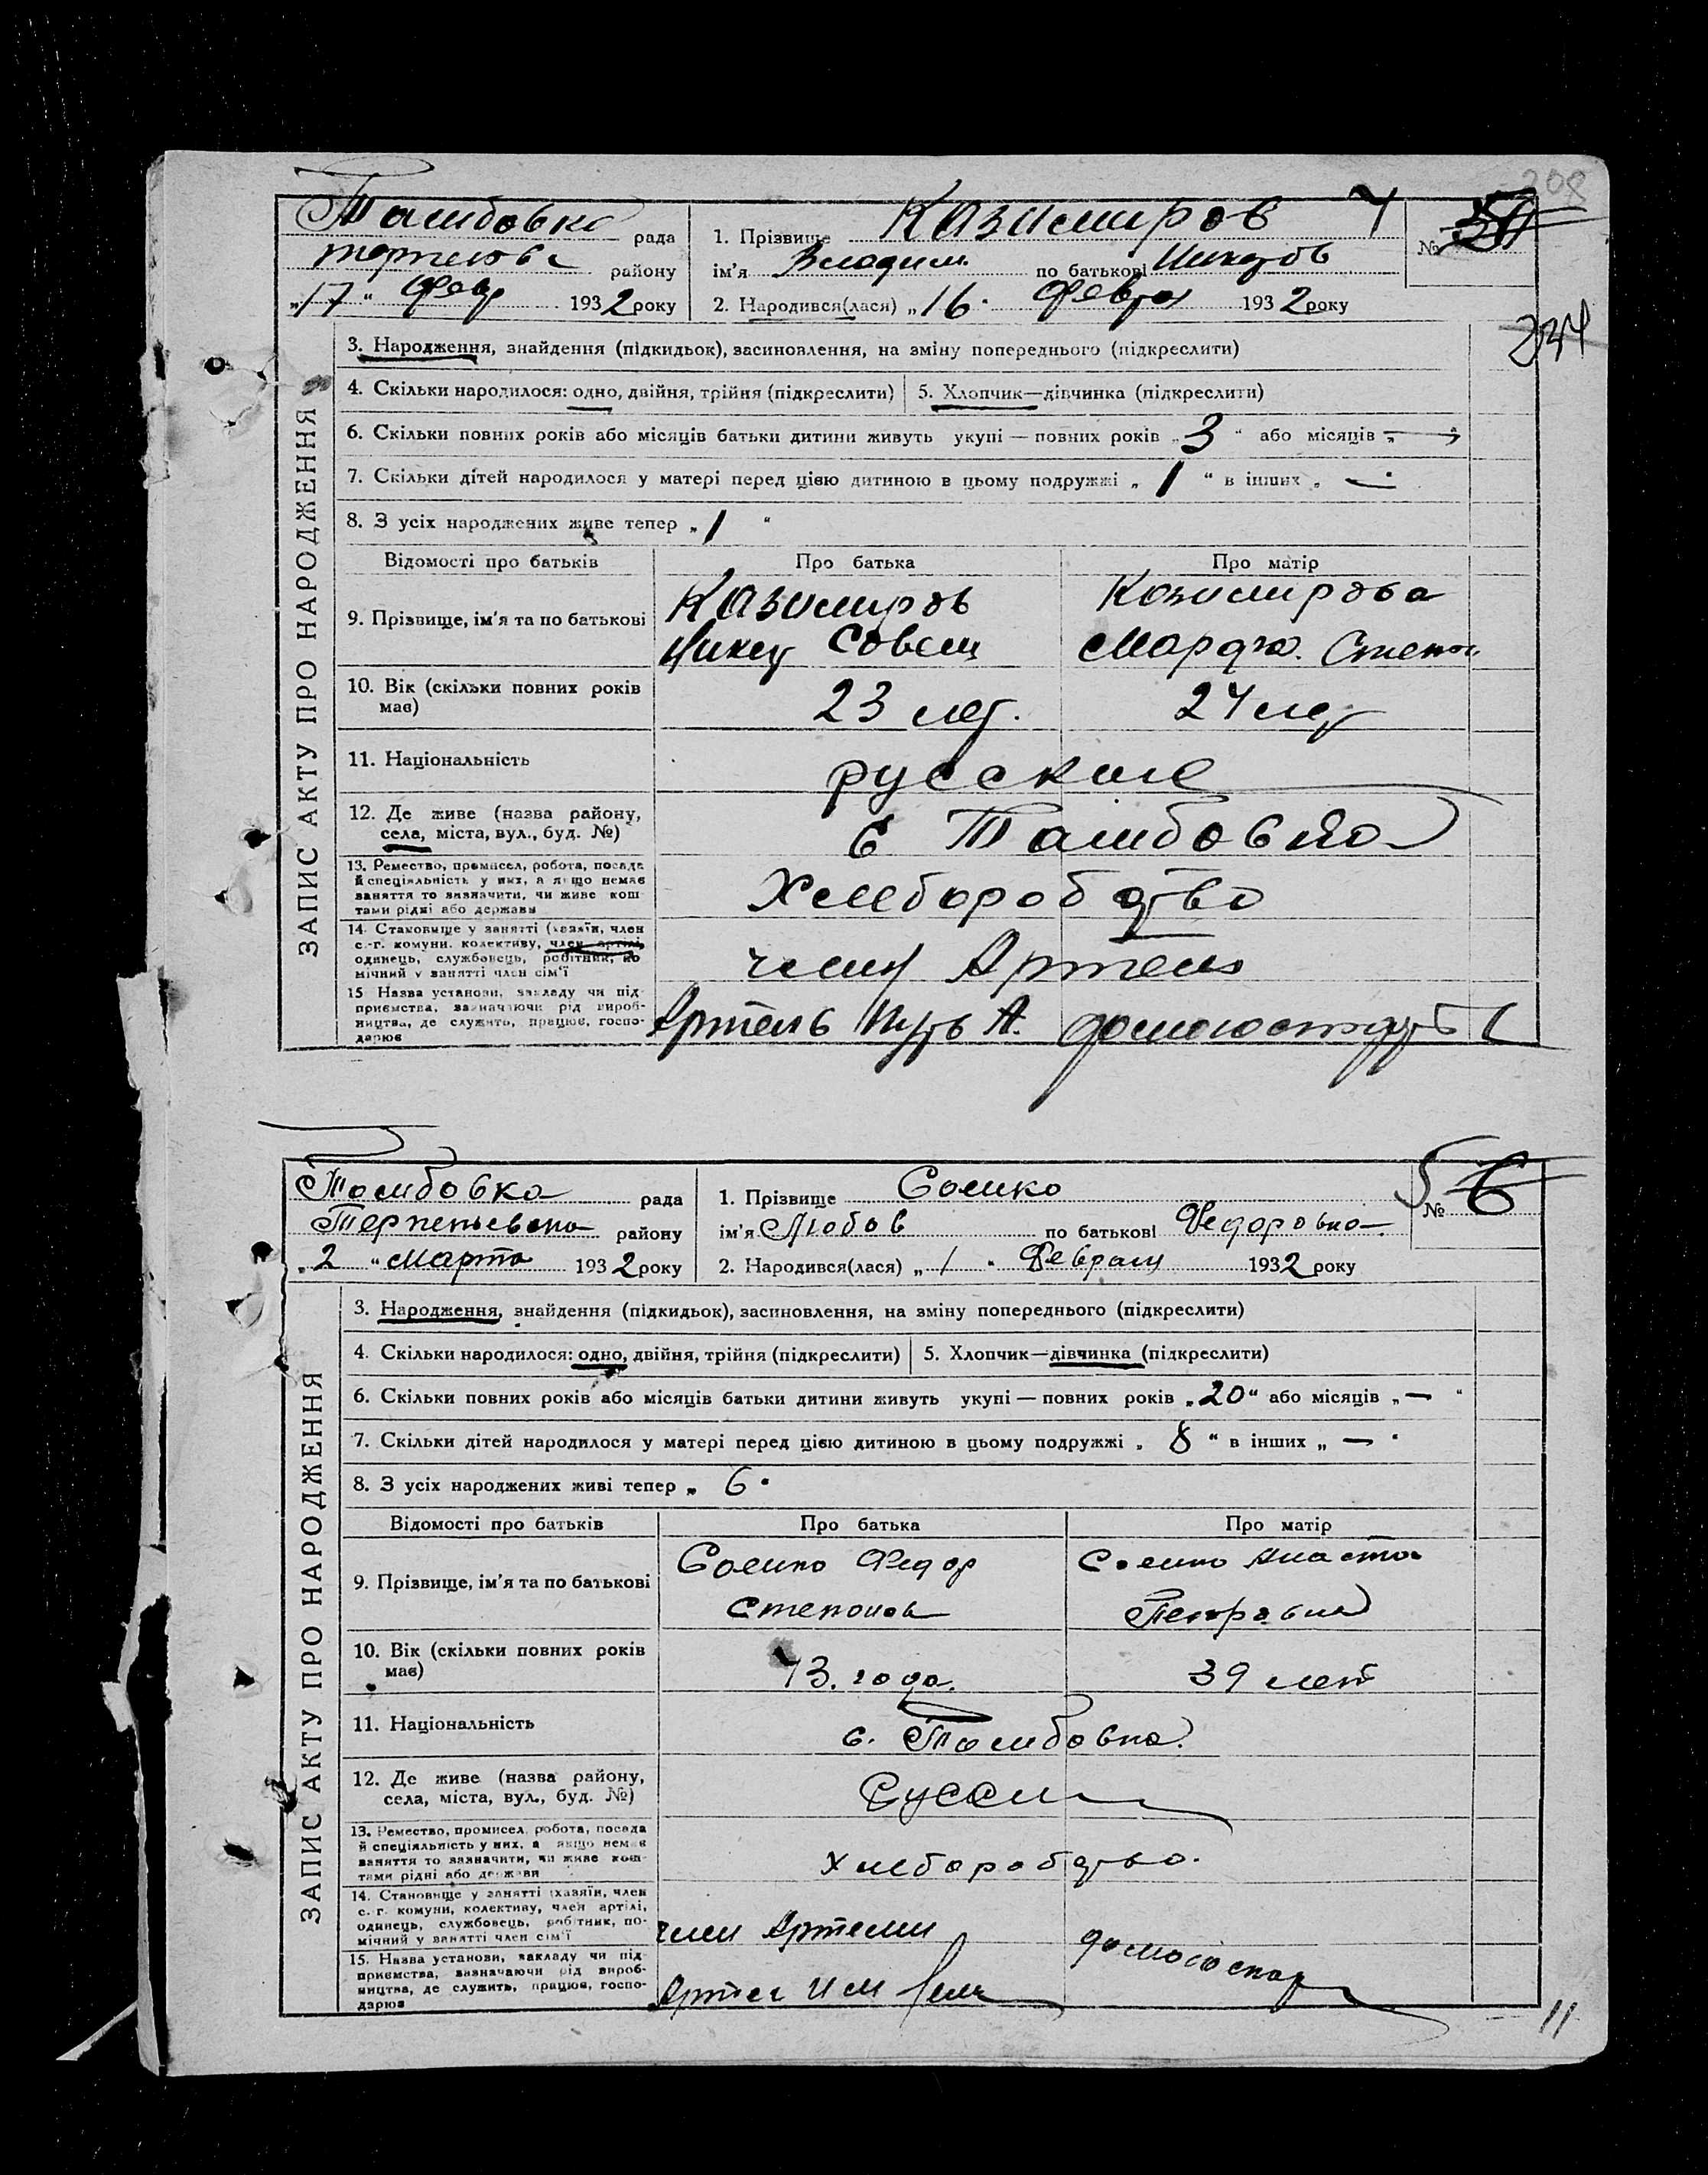 208
Тамбовка рада
района району
„17“ Февр 1932 року
1. Прізвище Казимиров 4
ім'я Владим. по батькові
2. Народився(лася) „16“ Февра 1932 року
№
234
ЗАПИС АКТУ ПРО НАРОДЖЕННЯ
3. Народження, знайдення (підкидьок), засиновлення, на зміну попереднього (підкреслити)
4. Скільки народилося: одно, двійня, трійня (підкреслити) 5. Хлопчик—дівчинка (підкреслити)
6. Скільки повних років або місяців батьки дитини живуть укупі — повних років „3“ або місяців „—“
7. Скільки дітей народилося у матері перед цією дитиною в цьому подружжі „1“ в інших „—“
8. З усіх народжених живе тепер „1“
Відомості про батьків Про батька Про матір
9. Прізвище, ім'я та по батькові
Казимиров Казимирова
Савел Марфа. Степан
10. Вік (скільки повних років має) 23 лет. 24 лет
11. Національність русские
12. Де живе (назва району, села, міста, вул., буд. №) с Тамбовка
13. Ремество, промисел, робота, посада
й спеціяльність у них, а якщо немає
заняття то зазначити, чи живе кош-
тами рідні або держави
Хлеборобство
14. Становище у занятті (хазяїн, член
с.-г. комуни, колективу, член артілі,
одинець, службовець, робітник, по-
мічний у занятті член сім'ї
член Артели
15 Назва установи, закладу чи під-
приємства, зазначаючи рід вироб-
ництва, де служить, працює, госпо-
дарює
Артель Путь А.
Тамбовка рада
района району
„2“ Марта 1932 року
1. Прізвище Сомко
ім'я Любов по батькові Федоровна
2. Народився(лася) „1“ Февраля 1932 року
5 № 6
ЗАПИС АКТУ ПРО НАРОДЖЕННЯ
3. Народження, знайдення (підкидьок), засиновлення, на зміну попереднього (підкреслити)
4. Скільки народилося: одно, двійня, трійня (підкреслити) 5. Хлопчик—дівчинка (підкреслити)
6. Скільки повних років або місяців батьки дитини живуть укупі — повних років „20“ або місяців „—“
7. Скільки дітей народилося у матері перед цією дитиною в цьому подружжі „8“ в інших „—“
8. З усіх народжених живі тепер „6“
Відомості про батьків Про батька Про матір
9. Прізвище, ім'я та по батькові
Сомко Федор Сомко Анаста
Степанов Петровна
10. Вік (скільки повних років має) 43. года. 39 лет
11. Національність с. Тамбовка.
12. Де живе (назва району, села, міста, вул., буд. №)
13. Ремество, промисел, робота, посада
й спеціяльність у них, а якщо немає
заняття то зазначити, чи живе кош-
тами рідні або держави
Хлеборобство.
14. Становище у занятті (хазяїн, член
с.-г. комуни, колективу, член артілі,
одинець, службовець, робітник, по-
мічний у занятті член сім'ї
член Артели
15. Назва установи, закладу чи під-
приємства, зазначаючи рід вироб-
ництва, де служить, працює, госпо-
дарює
Артел им
11